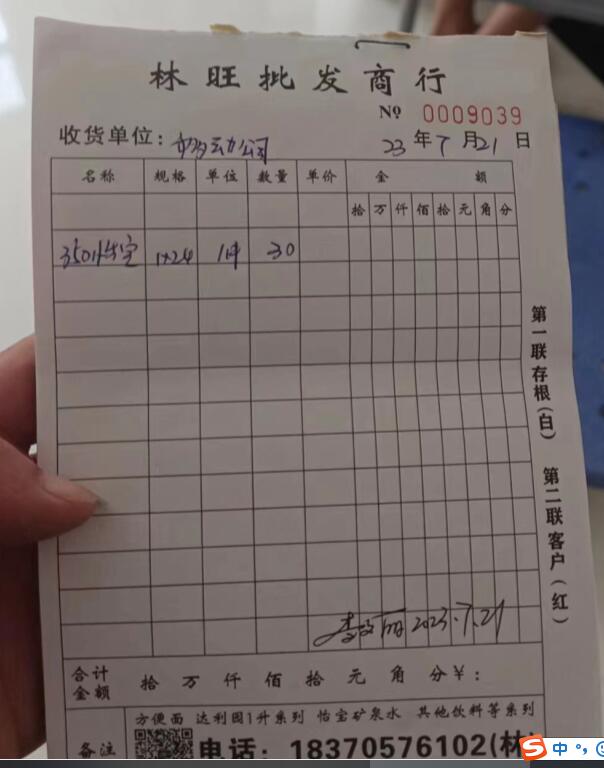 林旺批发商行
№ 0009039
收货单位： 公司 23年7月21日
名称 规格 单位 数量 单价 金额
拾 万 仟 佰 拾 元 角 分
350怡宝 1×24 件 30
第一联存根（白） 第二联客户（红）
2023.7.21
合计金额 拾 万 仟 佰 拾 元 角 分 ￥：
方便面 达利园1升系列 怡宝矿泉水 其他饮料等系列
备注 电话：18370576102(林
S 中